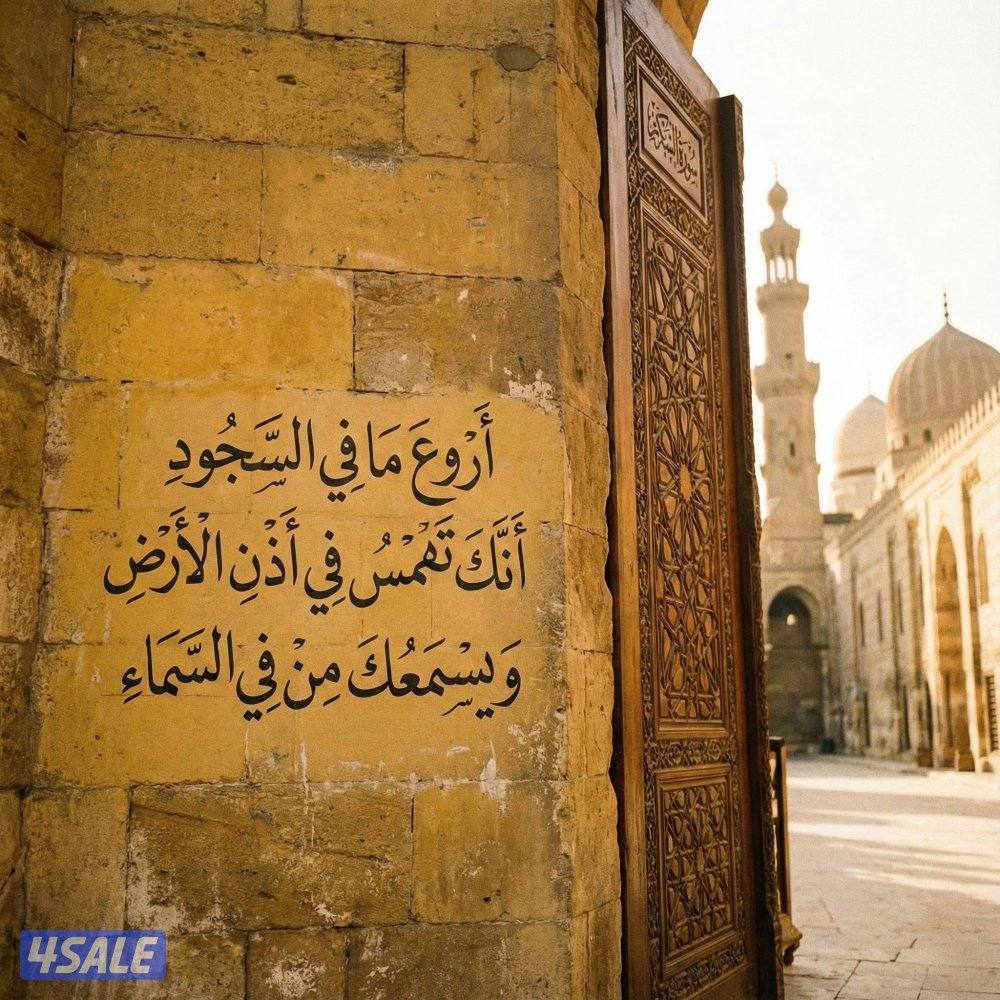 أَرْوعَ مَا فِي السَّجُودِ
أَنَّكَ تَهْمْسُ فِي أَذْنِ الْأَرْضِ
وَيسْمَعُكَ مِنْ فِي السَّمَاءِ
سورة
4SALE